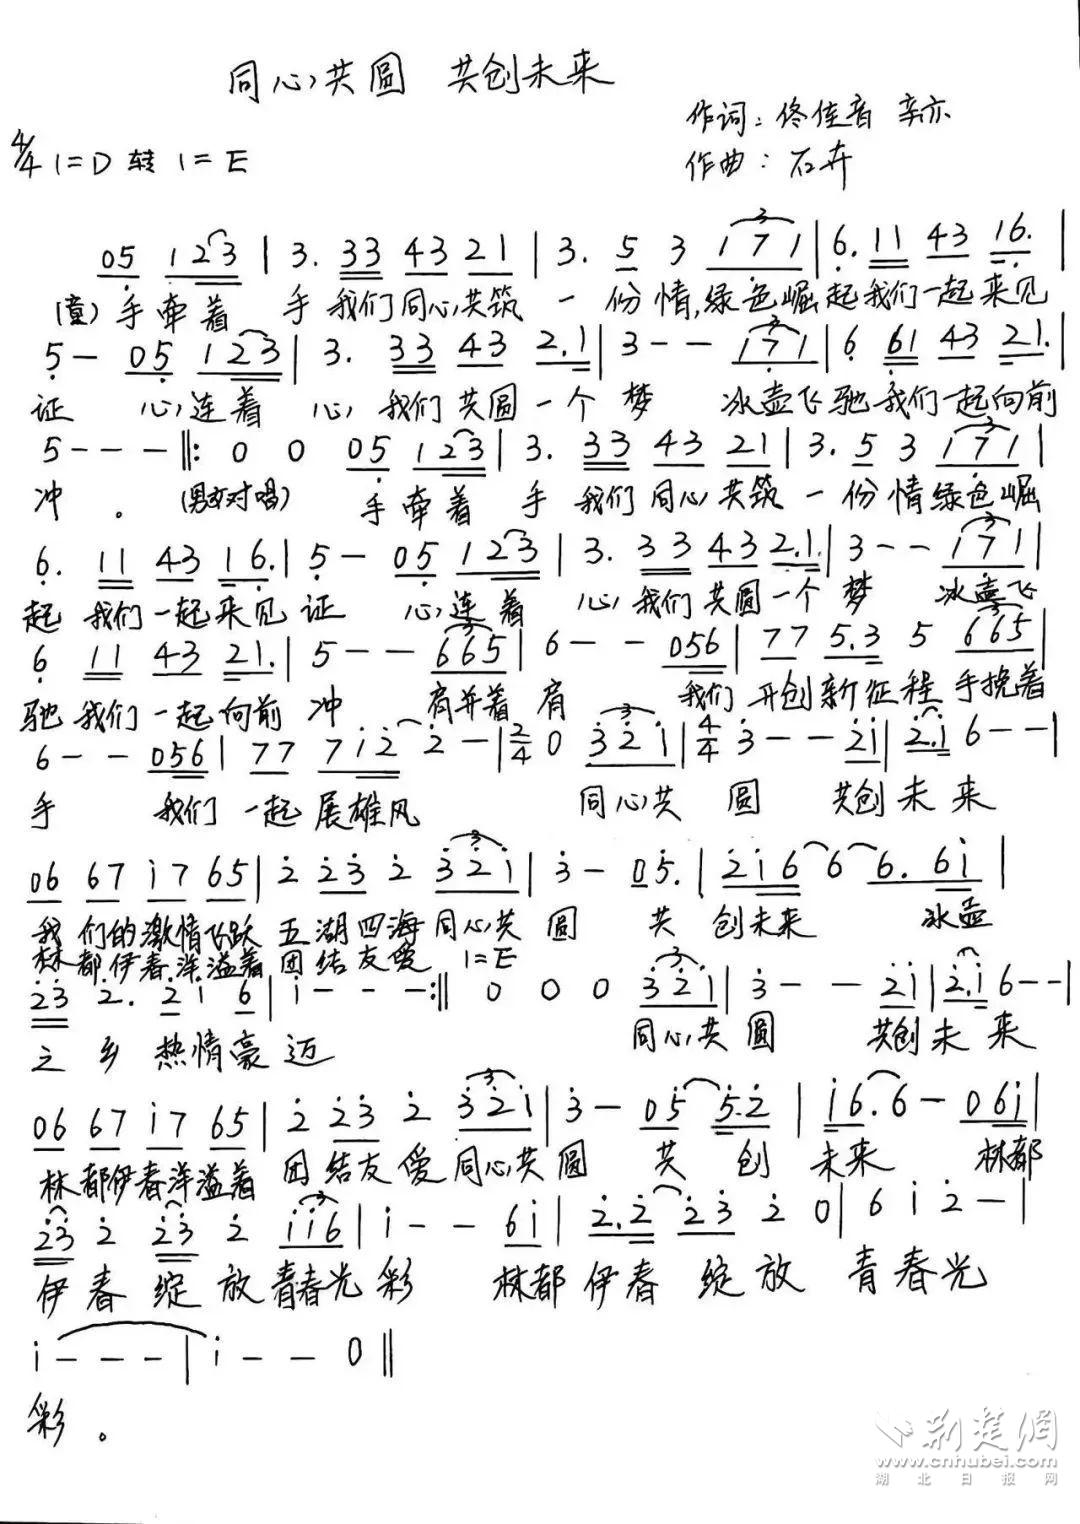 同心共圆 共创未来
作词：佟佳音 辛亦
4/4 1=D 转 1=E
作曲：石卉
05 123 | 3. 33 43 21 | 3. 5 3 171 | 6. 11 43 16. |
（童）手牵着 手 我们同心共筑 一 份情,绿色崛起我们一起来见
5 - 05 123 | 3. 33 43 2.1 | 3 - - 171 | 6 61 43 21. |
证 心连着 心 我们共圆一个 梦 冰壶飞驰我们一起向前
5 - - - ‖: 0 0 05 123 | 3. 33 43 21 | 3. 5 3 171 |
冲 。 (男女对唱) 手牵着 手 我们同心共筑 一 份情绿色崛
6. 11 43 16. | 5 - 05 123 | 3. 33 43 2.1. | 3 - - 171 |
起 我们一起来见证 心连着 心我们共圆一个 梦 冰壶飞
6 11 43 21. | 5 - - 665 | 6 - - 056 | 77 5.3 5 665 |
驰我们一起向前 冲 肩并着 肩 我们开创新征程手挽着
6 - - 056 | 77 7i2 2 - | 2/4 0 32i | 4/4 3 - - 2i | 2.i 6 - - |
手 我们 一起展雄风 同心共 圆 共创未来
06 67 i7 65 | 2 23 2 32i | 3 - 05. | 2i6 6 6. 6i |
我们的激情飞跃 五湖四海同心共 圆 共 创未来 冰壶
林都伊春洋溢着 团结友爱 1=E
23 2. 2i 6 | i - - - :‖ 0 0 0 32i | 3 - - 2i | 2.i 6 - - |
之 乡 热情豪迈 同心共圆 共创未来
06 67 i7 65 | 2 23 2 32i | 3 - 05 5.2 | i6. 6 - 06i |
林都伊春洋溢着 团结友爱同心共圆 共 创 未来 林都
23 2 23 2 ii6 | i - - 6i | 2.2 23 2 0 | 6 i 2 - |
伊春 绽放青春光彩 林都伊春 绽放 青春光
i - - - | i - - 0 ‖
彩 。
荆楚网
www.cnhubei.com
湖北日报网